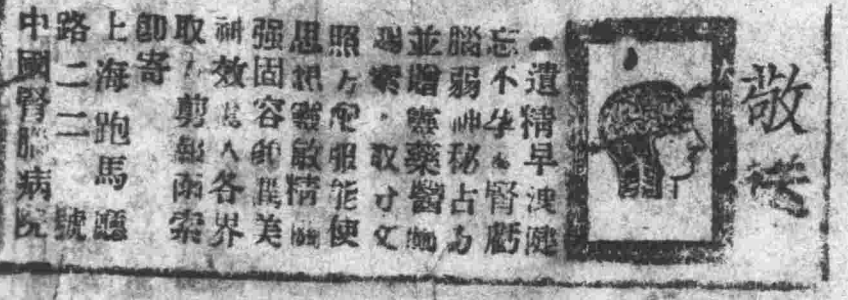 敬
遺精早洩健
忘不孕腎虧
腦弱神秘古方
並贈藥醫
索取寸文
照方配服能使
思想靈敏精
强固容美
效人各界
取剪報函索
卽寄
上海跑馬廳
路二二號
中國腎腦病院